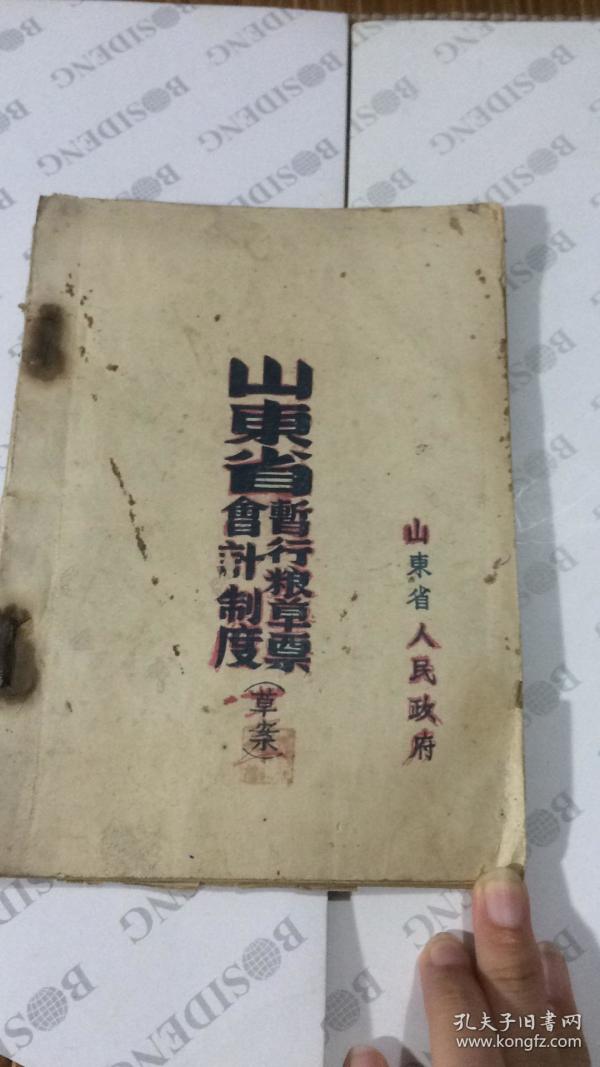 山東省
暫行粮草票
會計制度
（草案）
山東省人民政府
BOSIDENG
BOSIDENG
BOSIDENG
BOSIDENG
BOSIDENG
BOSIDENG
BOSIDENG
BOSIDENG
孔夫子旧書网
www.kongfz.com